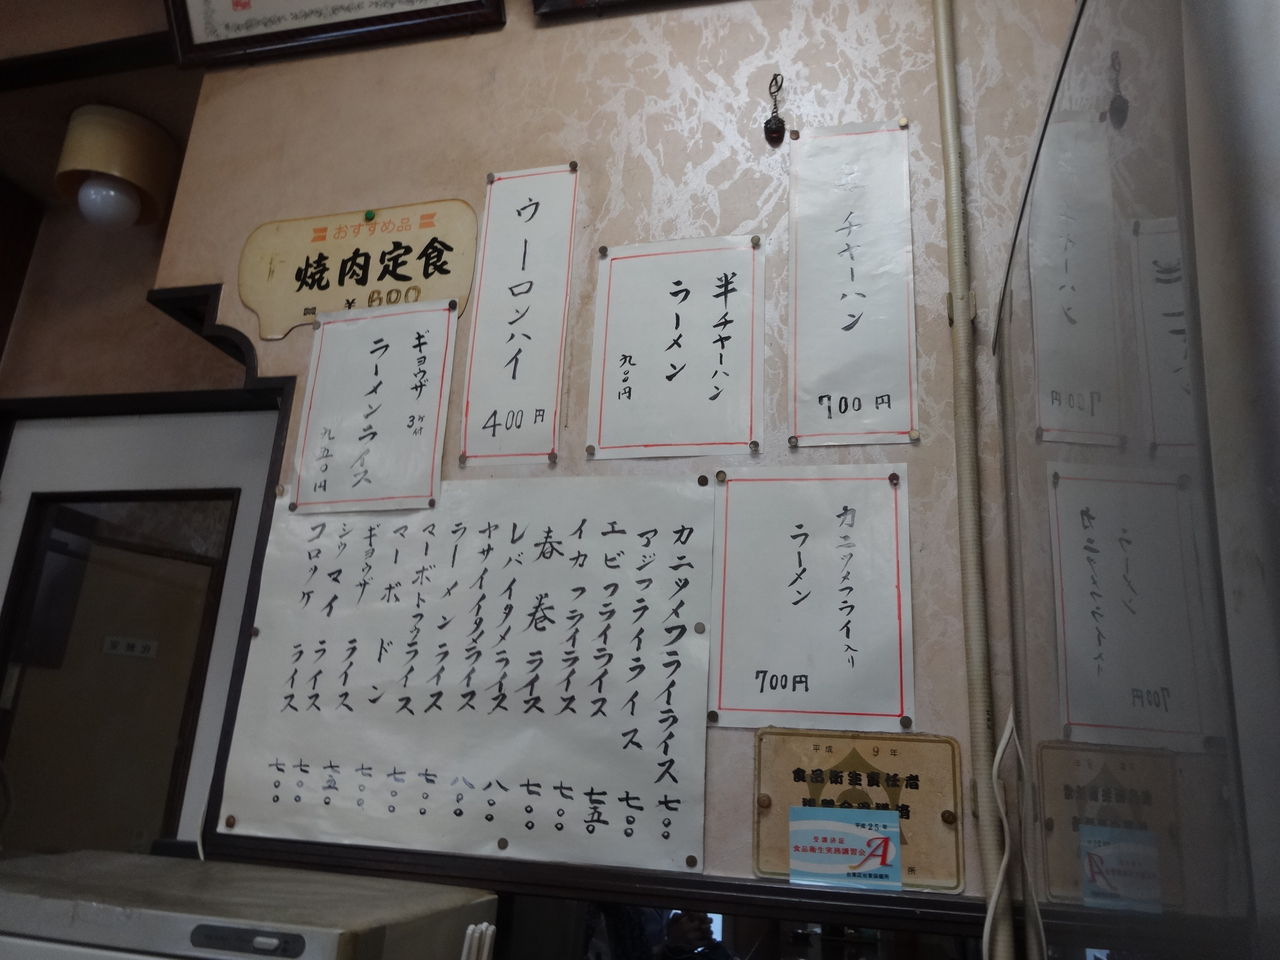 おすすめ品
焼肉定食
¥600
ギョウザ 3ヶ付
ラーメンライス
九五〇円
ウーロンハイ
400円
半チャーハン
ラーメン
九〇〇円
チャーハン
700円
カニツメフライ入り
ラーメン
700円
カニツメフライライス 七〇〇
アジフライライス 七〇〇
エビフライライス 七五〇
イカフライライス 七〇〇
春巻ライス 七〇〇
レバイタメライス 八〇〇
ヤサイイタメライス 八〇〇
ラーメンライス 七〇〇
マーボトフウライス 七〇〇
マーボドン 七〇〇
ギョウザライス 七五〇
シウマイライス 七〇〇
コロッケライス 七〇〇
平成 9年
食品衛生責任者
平成25年
受講済証
食品衛生実務講習会
A
台東区台東保健所
所